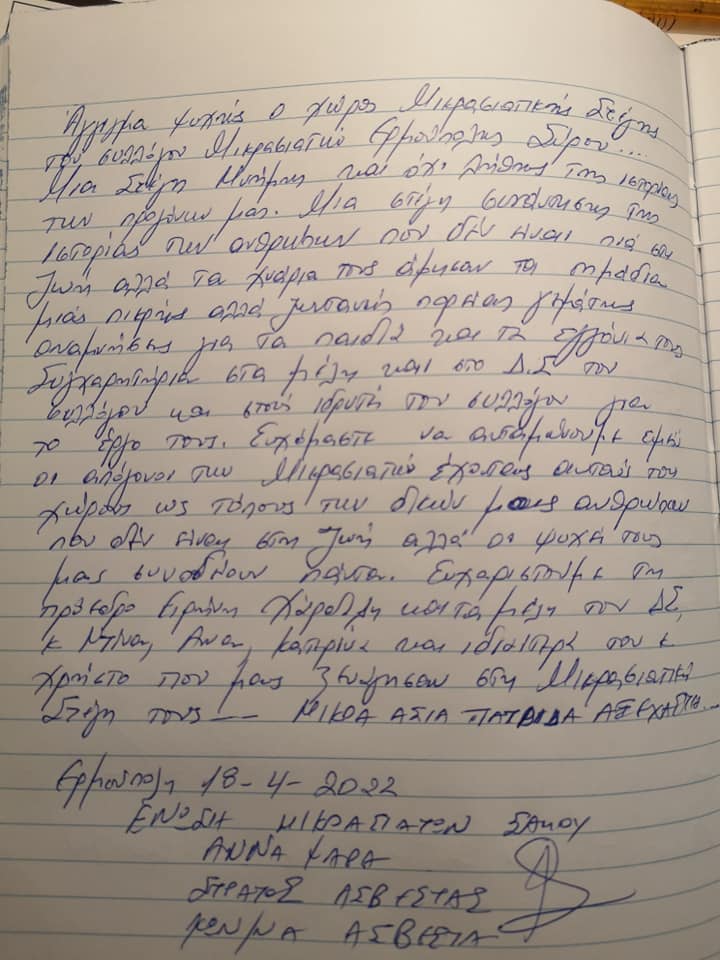 Άγγιγμα ψυχής ο χώρος Μικρασιατικής Στέγης
του συλλόγου Μικρασιατών Ερμούπολης Σύρου....
Μια Στέγη Μνήμης και όχι λήθης της ιστορίας
των προγόνων μας. Μια στέγη συνάντησης της
ιστορίας των ανθρώπων που δεν είναι πιά στη
ζωή αλλά τα χνάρια τους άφησαν τα σημάδια
μιάς πικρής αλλά ζωντανής πορείας γεμάτης
αναμνήσεις για τα παιδιά και τα εγγόνια τους
Συγχαρητήρια στα μέλη και στο Δ.Σ του
συλλόγου και στους ιδρυτές του συλλόγου για
το έργο τους. Ευχόμαστε να ανταμώνουμε εμείς
οι απόγονοι των Μικρασιατών έχοντας αυτούς του
χώρους ως τόπους των δικών μας ανθρώπων
που δεν είναι στη ζωή αλλά οι ψυχές τους
μας συνοδεύουν πάντα. Ευχαριστούμε τη
πρόεδρο Ειρήνη και τα μέλη του ΔΣ,
κ Ντίνα, Άννα, Κατερίνα και ιδιαίτερα τον κ
Χρήστο που μας ξενάγησαν στη Μικρασιατική
Στέγη τους -- ΜΙΚΡΑ ΑΣΙΑ ΠΑΤΡΙΔΑ ΑΞΕΧΑΣΤΗ...
Ερμούπολη 18-4-2022
ΕΝΩΣΗ ΜΙΚΡΑΣΙΑΤΩΝ
ΑΝΝΑ ΨΑΡΑ
ΣΤΡΑΤΟΣ ΑΣΒΕΣΤΑΣ
ΑΣΒΕΣΤΑ